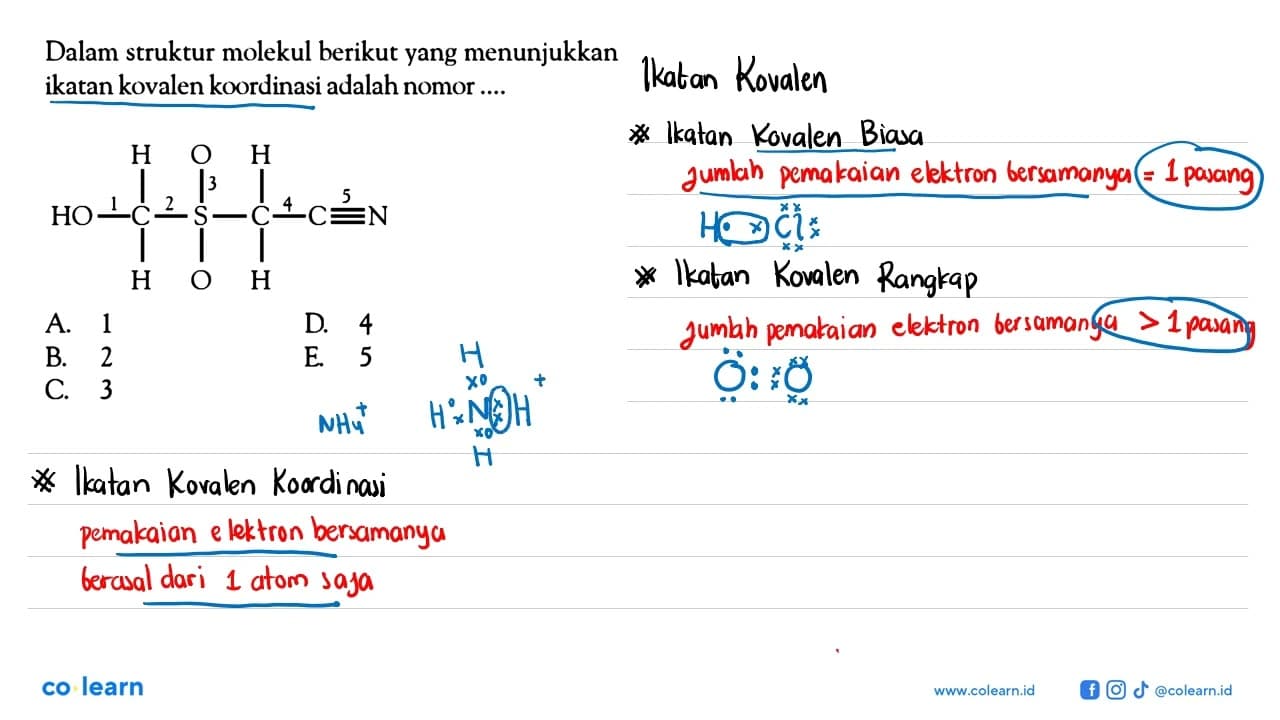 Dalam struktur molekul berikut yang menunjukkan
ikatan kovalen koordinasi adalah nomor ....
H O H
3
HO 1 C 2 S C 4 C 5 N
H O H
A. 1
B. 2
C. 3
D. 4
E. 5
NH4+
H
H N H +
H
* Ikatan Kovalen Koordinasi
pemakaian elektron bersamanya
berasal dari 1 atom saja
Ikatan Kovalen
* Ikatan Kovalen Biasa
Jumlah pemakaian elektron bersamanya = 1 pasang
H Cl
* Ikatan Kovalen Rangkap
Jumlah pemakaian elektron bersamanya > 1 pasang
O O
co learn
www.colearn.id
@colearn.id